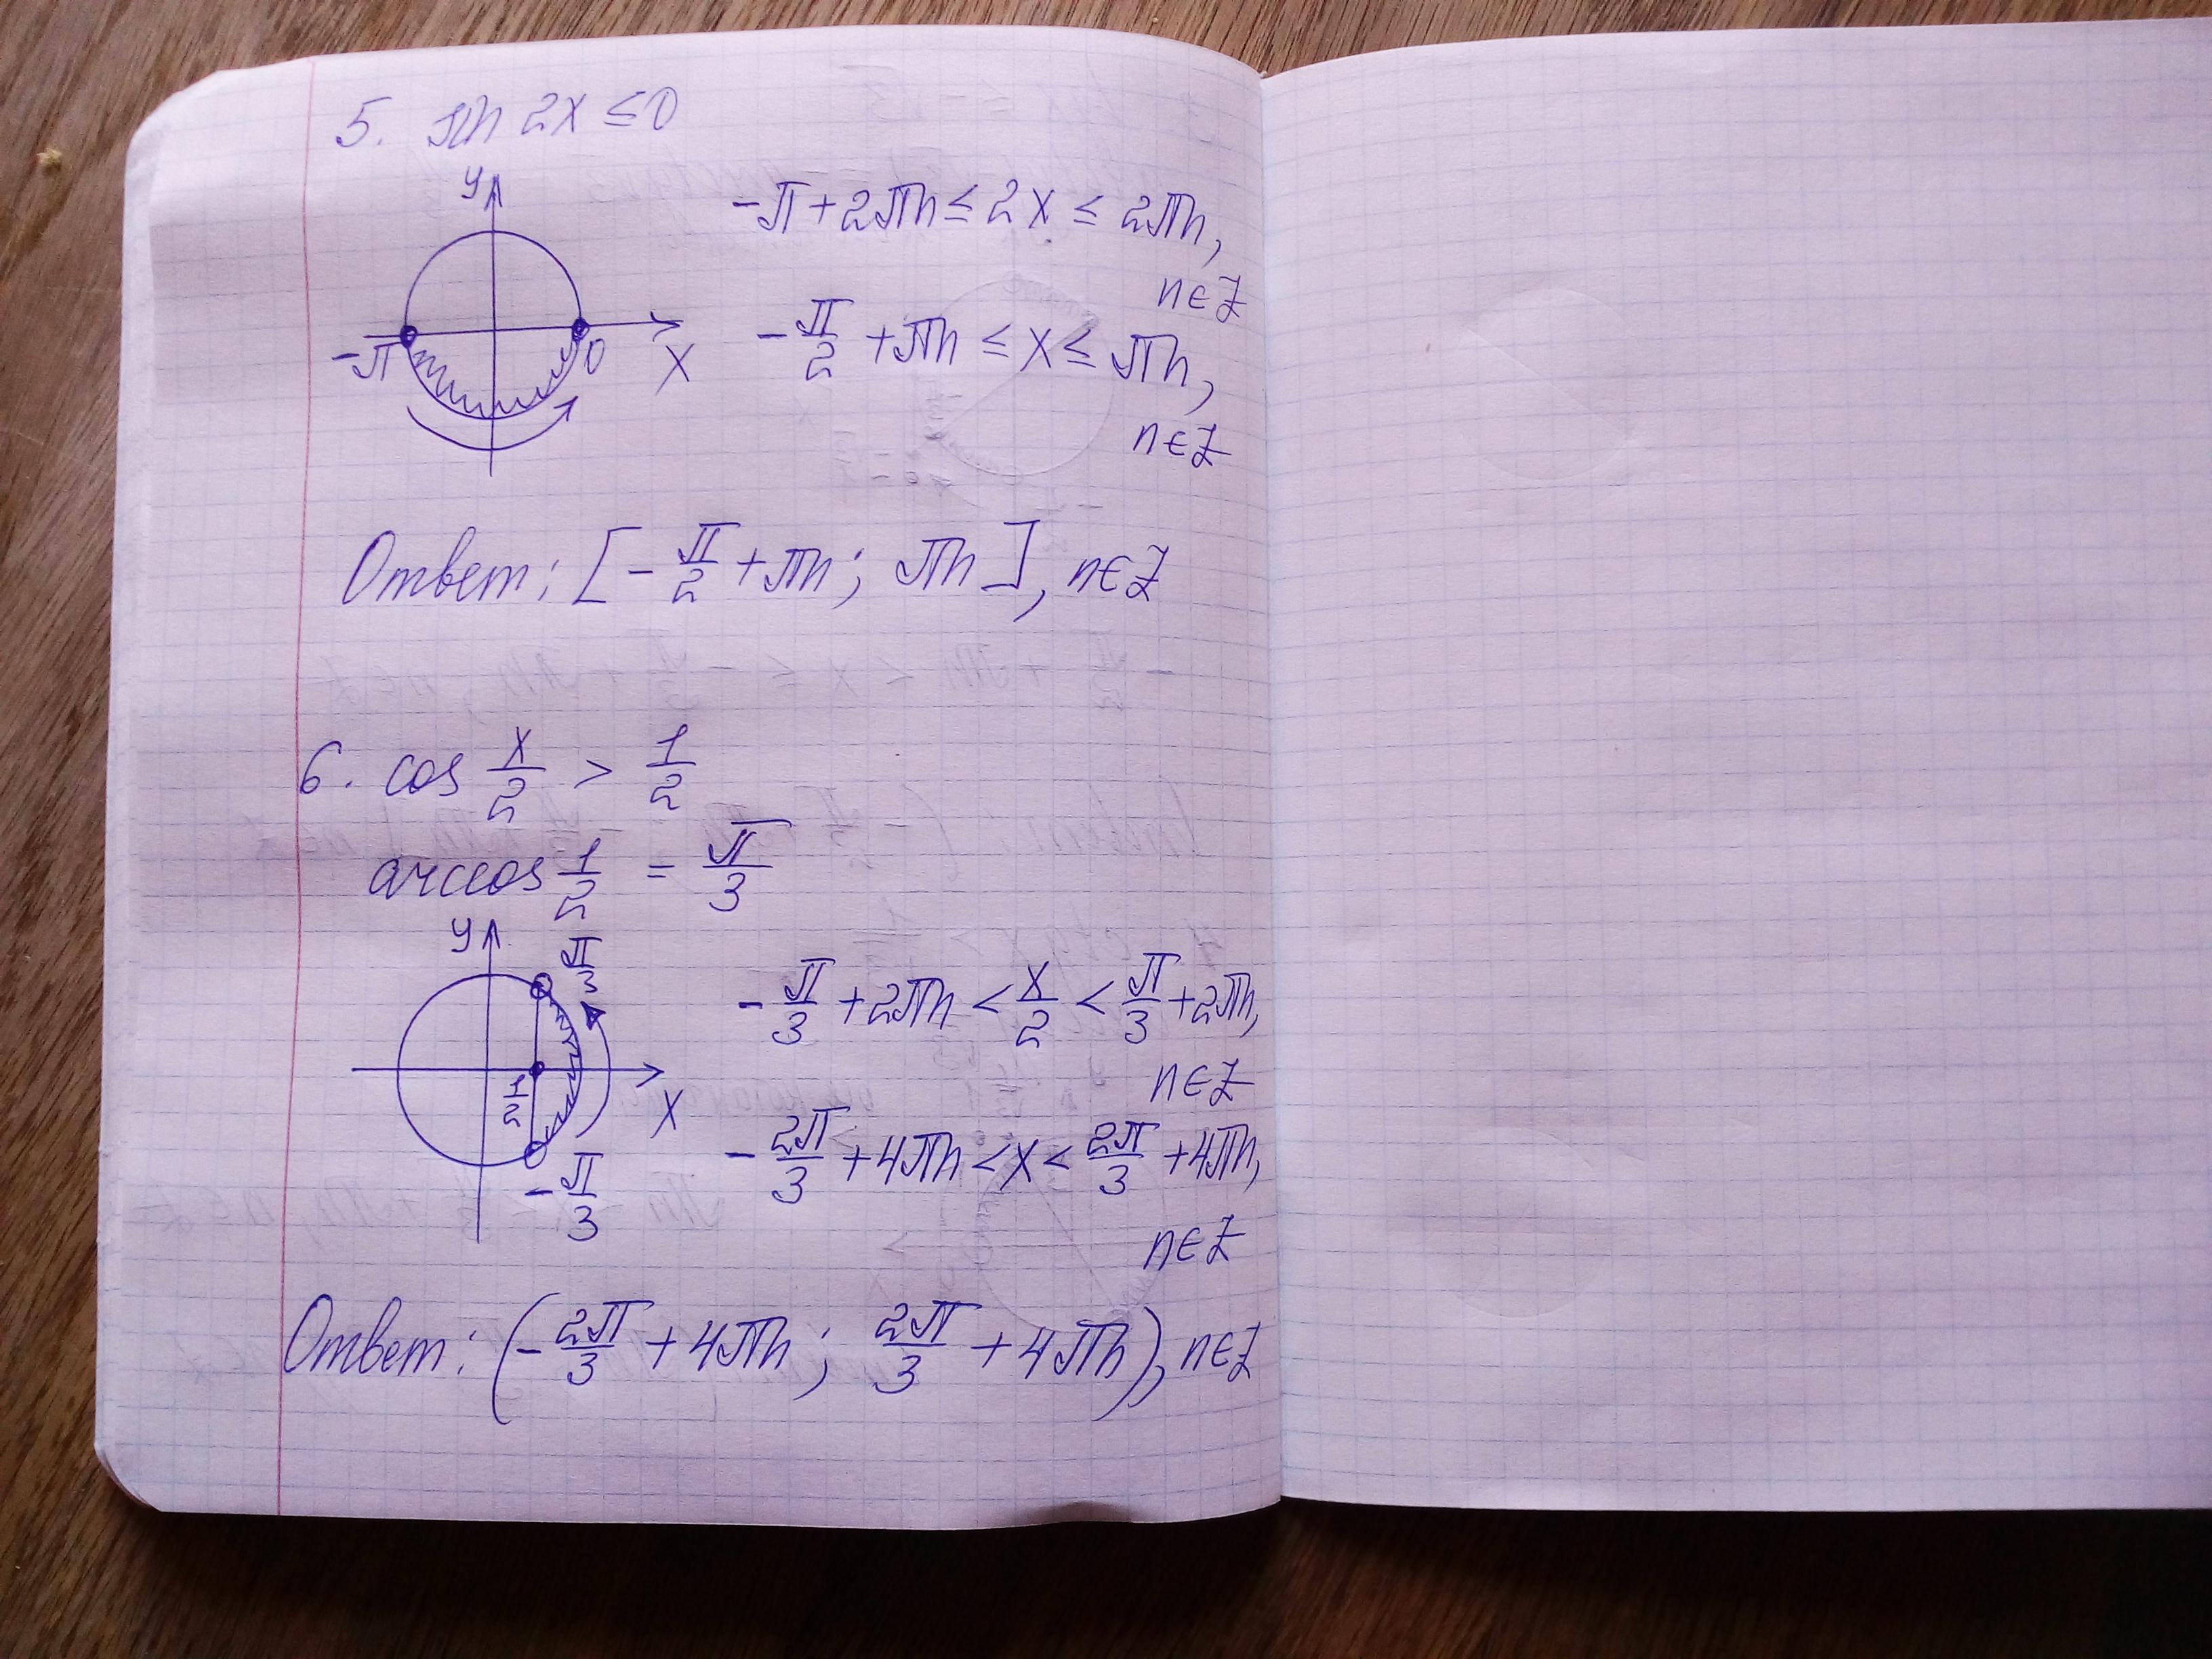 5. sin 2x ≤ 0
y
-π + 2πn ≤ 2x ≤ 2πn,
n∈Z
-π 0 x
-π/2 + πn ≤ x ≤ πn,
n∈Z
Ответ: [-π/2 + πn; πn], n∈Z
6. cos x/2 > 1/2
arccos 1/2 = π/3
y
π/3
-π/3 + 2πn < x/2 < π/3 + 2πn,
n∈Z
1/2 x
-π/3
-2π/3 + 4πn < x < 2π/3 + 4πn,
n∈Z
Ответ: (-2π/3 + 4πn; 2π/3 + 4πn), n∈Z